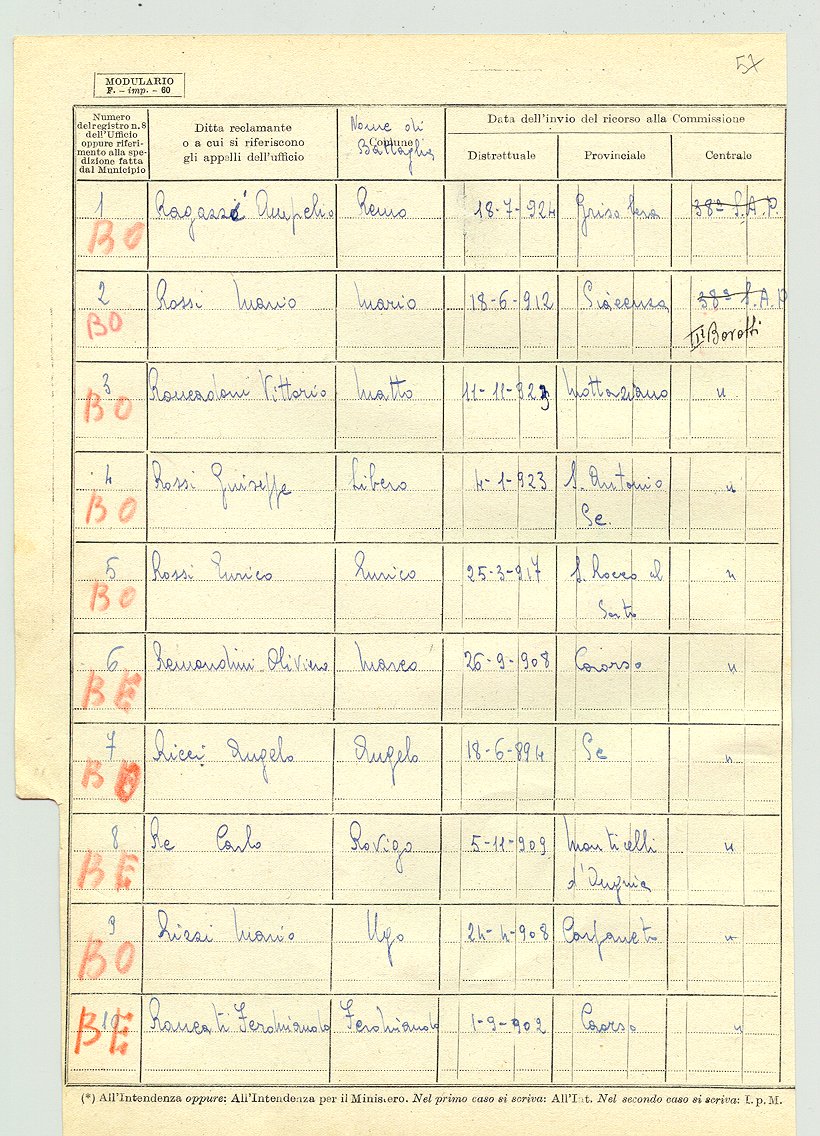 57
MODULARIO
F. - imp. - 60
Numero
del registro n. 8
dell'Ufficio
oppure riferi-
mento alla spe-
dizione fatta
dal Municipio
Ditta reclamante
o a cui si riferiscono
gli appelli dell'ufficio
Nome di
Comune
Battaglia
Data dell'invio del ricorso alla Commissione
Distrettuale Provinciale Centrale
1 Ragazzi Ampelio Remo 18-7-924 38ª S.A.P.
BO
2 Rossi Mario Mario 18-6-912 Piacenza 38ª S.A.P
BO III Borotti
3 Roncadoni Vittorio Matto 11-11-923 Mottaziano "
BO
4 Rossi Giuseppe Libero 4-1-923 S. Antonio "
BO
5 Rossi Enrico Enrico 25-3-917 S. Rocco al "
BO Porto
6 Remondini Oliviero Marco 26-9-908 Caorso "
BE
7 Ricci Angelo Angelo 18-6-894 "
BO
8 Re Carlo Rovigo 5-11-909 Monticelli "
BE d'Ongina
9 Rizzi Mario Ugo 24-4-908 Carpaneto "
BO
10 Roncati Ferdinando Ferdinando 1-9-902 Caorso "
BE
(*) All'Intendenza oppure: All'Intendenza per il Ministero. Nel primo caso si scriva: All'Int. Nel secondo caso si scriva: I. p. M.